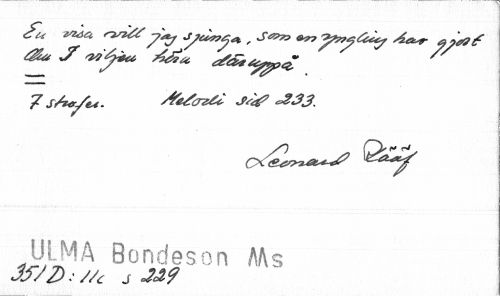 En visa vill jag sjunga, som en yngling har gjort
Om I viljen höra däruppå
7 strofer. Melodi sid 233.
Leonard Rääf
ULMA Bondeson Ms
351 D:11c s 229